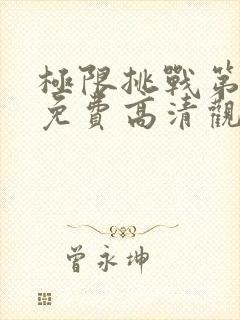 極限挑戰第
免費高清觀
曾永坤